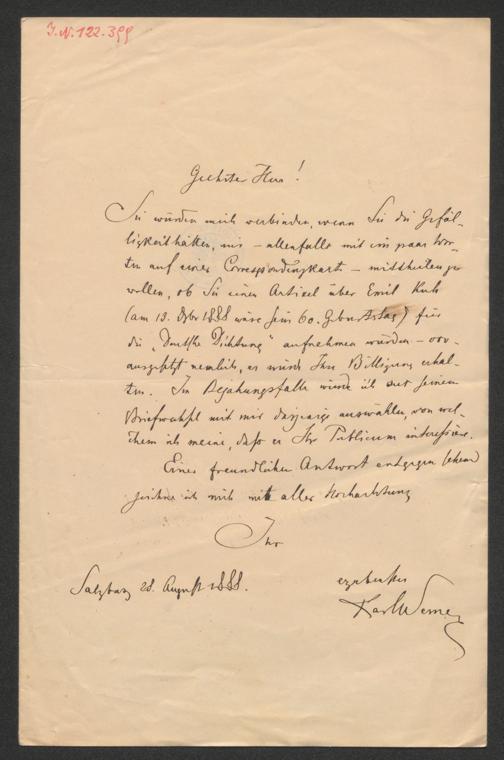 I.N. 122.399
Geehrter Herr!
Sie würden mich verbinden, wenn Sie die Gefäl-
ligkeit hätten, mir – allenfalls mit ein paar Wor-
ten auf einer Correspondenzkarte – mittheilen zu
wollen, ob Sie einen Artikel über Emil Kuh
(am 13. Dzbr 1888 wäre sein 60. Geburtstag) für
die „Deutsche Dichtung" aufnehmen würden – vor-
ausgesetzt nemlich, er würde Ihre Billigung erhal-
ten. Im Bejahungsfalle würde ich aus seinem
Briefwechsel mit mir dasjenige auswählen, von wel-
chem ich meine, daß es Ihr Publicum interessire.
Einer freundlichen Antwort entgegen sehend
zeichne ich mich mit aller Hochachtung
Ihr
ergebenster
Salzburg 28. August 1888.
Karl Werner